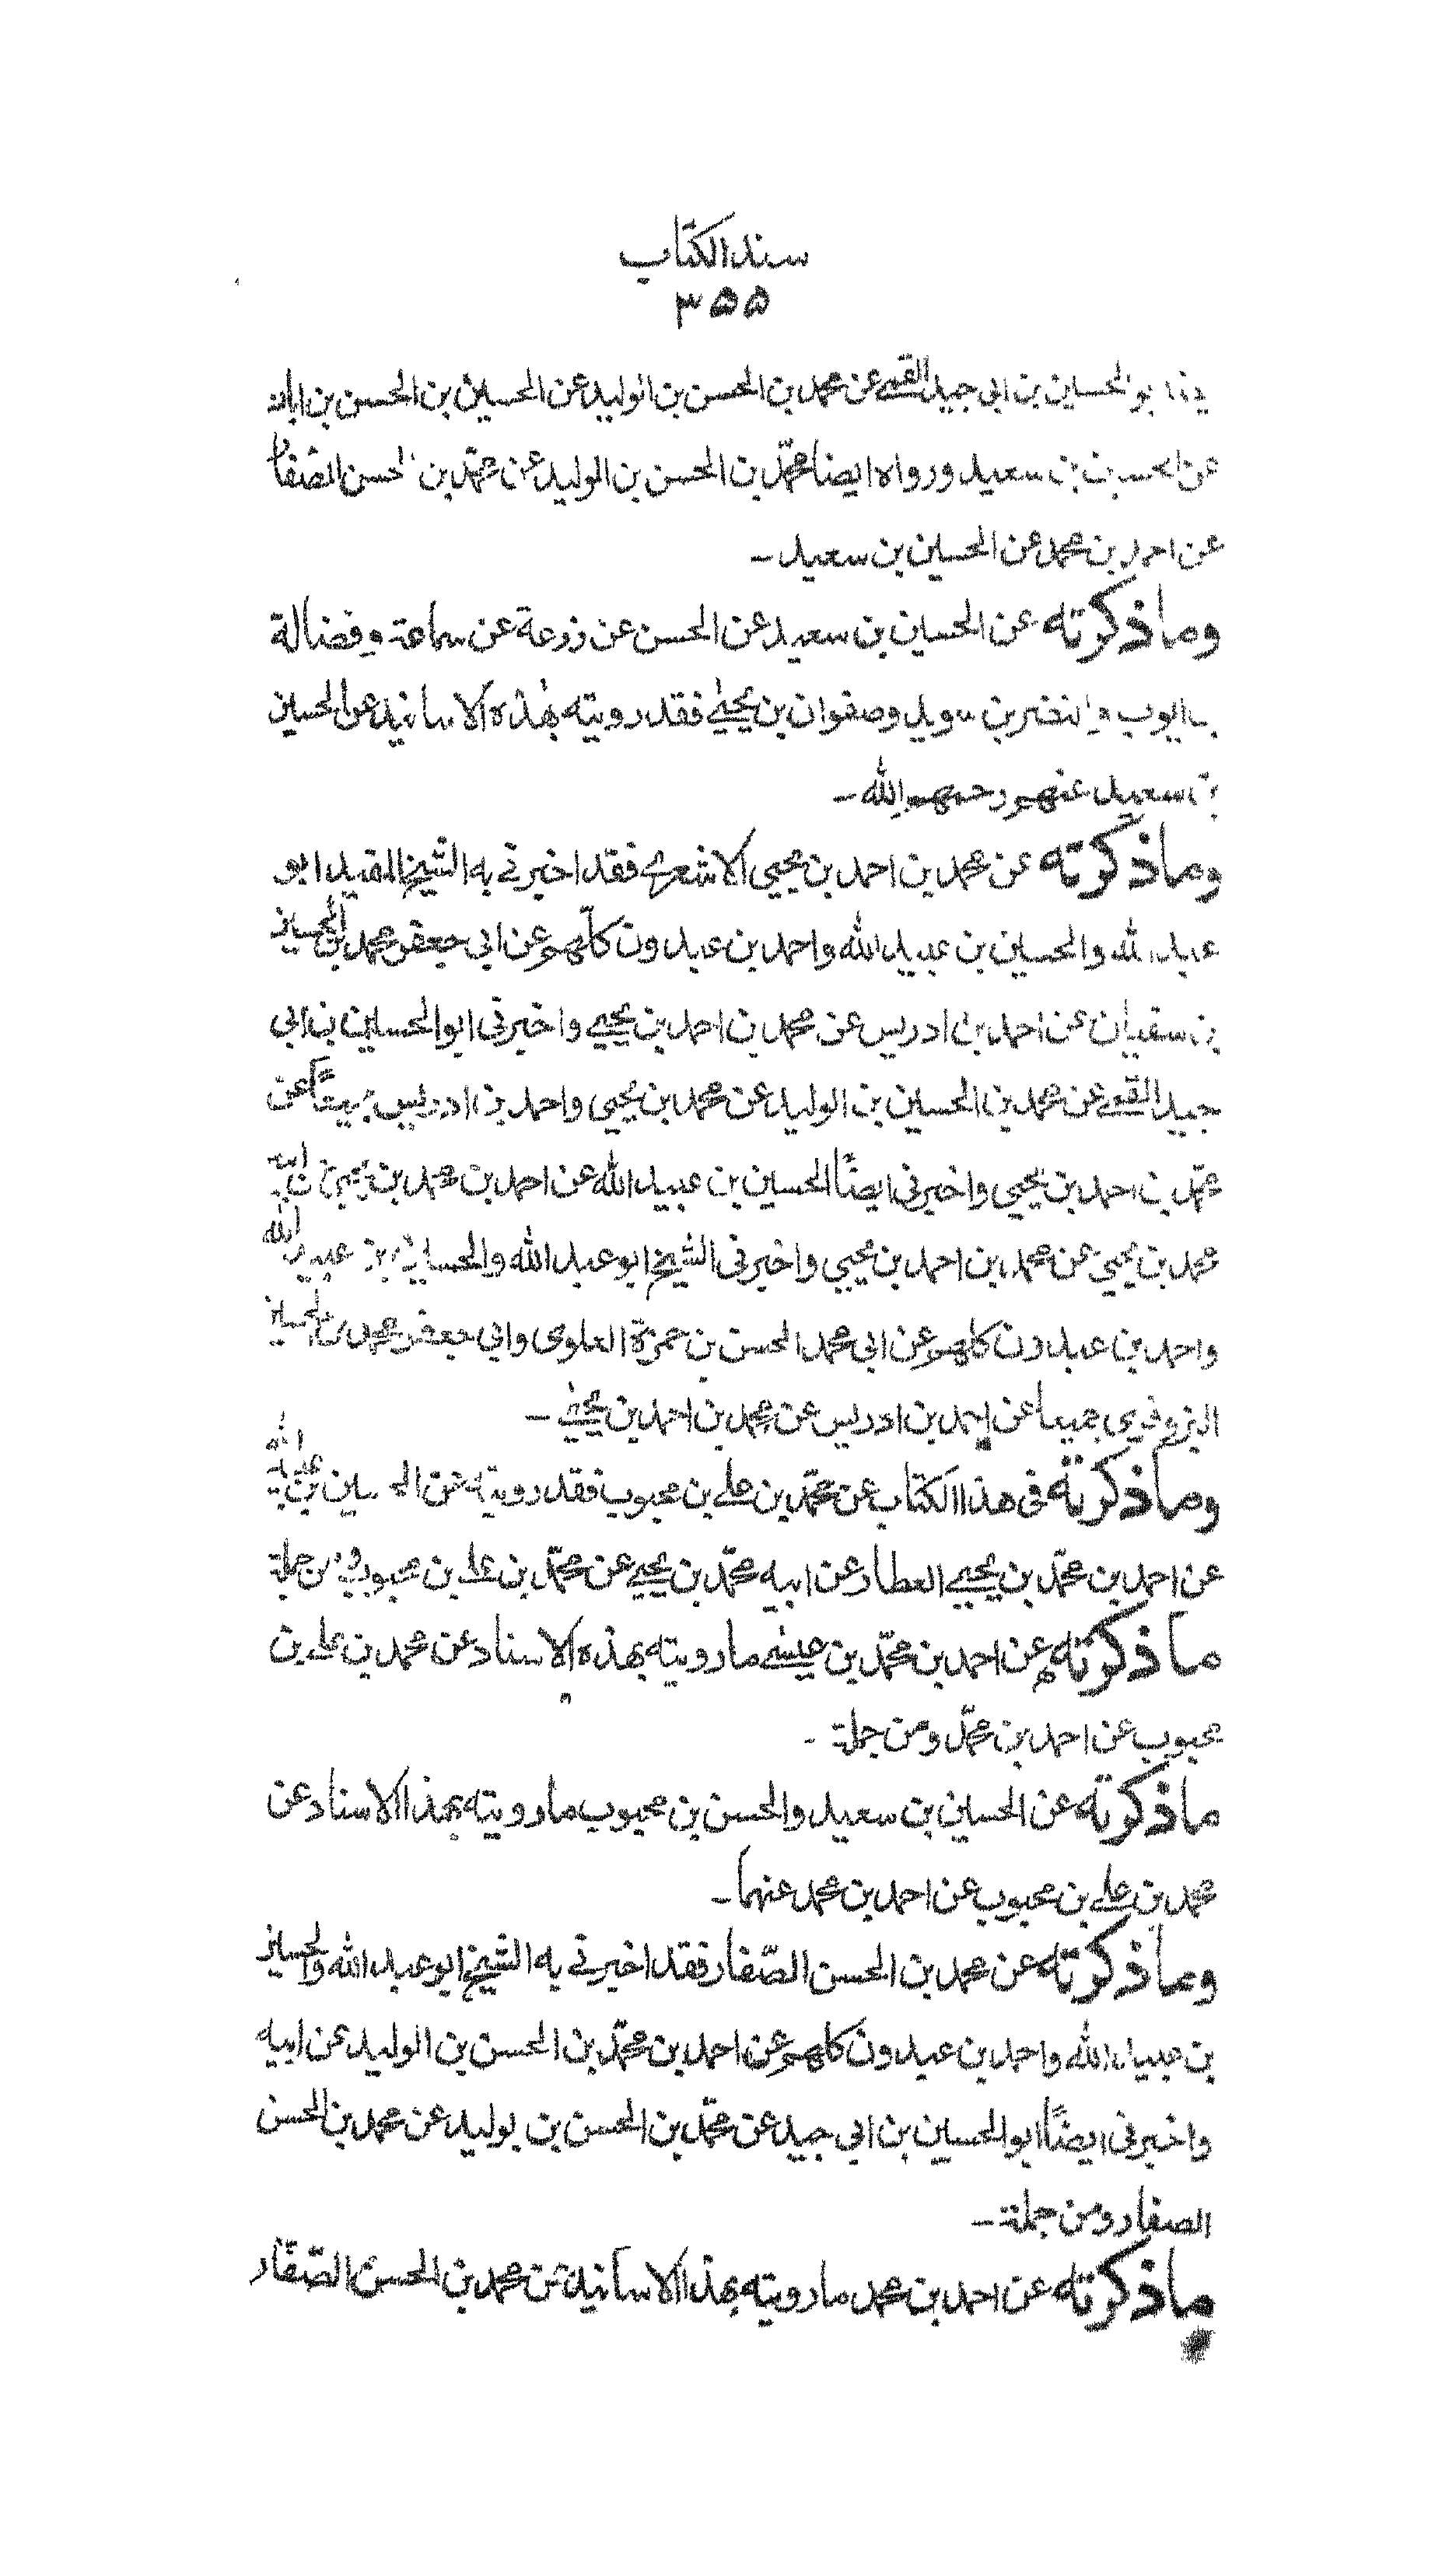 سند الكتاب
۳۵۵
ابو الحسين بن ابى جيد القمى عن محمد بن الحسن بن الوليد عن الحسين بن الحسن بن ابان
عن الحسين بن سعيد ورواه ايضا محمّد بن الحسن بن الوليد عن محمّد بن الحسن الصّفار
عن احمد بن محمد عن الحسين بن سعيد ـ
وما ذكرته عن الحسين بن سعيد عن الحسن عن زرعة عن سماعة وفضالة
بن ايوب والنضر بن سويد وصفوان بن يحيى فقد رويته بهذه الاسانيد عن الحسين
بن سعيد عنهم رحمهم الله ـ
وما ذكرته عن محمد بن احمد بن يحيى الاشعرى فقد اخبرنى به الشيخ المفيد ابو
عبد الله والحسين بن عبيد الله واحمد بن عبدون كلّهم عن ابى جعفر محمد بن الحسين
بن سفيان عن احمد بن ادريس عن محمد بن احمد بن يحيى واخبرنى ابو الحسين بن ابى
جيد القمى عن محمد بن الحسين بن الوليد عن محمد بن يحيى واحمد بن ادريس جميعًا عن
محمّد بن احمد بن يحيى واخبرنى ايضًا الحسين بن عبيد الله عن احمد بن محمد بن يحيى عن ابيه
محمد بن يحيى عن محمد بن احمد بن يحيى واخبرنى الشيخ ابو عبد الله والحسين بن عبيد الله
واحمد بن عبدون كلهم عن ابى محمد الحسن بن حمزة العلوى وابى جعفر محمد بن الحسين
البزوفرى جميعا عن احمد بن ادريس عن محمد بن احمد بن يحيى ـ
وما ذكرته فى هذا الكتاب عن محمّد بن على بن محبوب فقد رويته عن الحسين بن عبيد الله
عن احمد بن محمّد بن يحيى العطار عن ابيه محمّد بن يحيى عن محمّد بن على بن محبوب ومن جملة
ما ذكرته عن احمد بن محمّد بن عيسى ما رويته بهذه الاسناد عن محمد بن على بن
محبوب عن احمد بن محمّد ومن جملة ـ
ما ذكرته عن الحسين بن سعيد والحسن بن محبوب ما رويته بهذا الاسناد عن
محمد بن على بن محبوب عن احمد بن محمد عنهما ـ
وما ذكرته عن محمد بن الحسن الصّفار فقد اخبرنى به الشّيخ ابو عبد الله والحسين
بن عبيد الله واحمد بن عبدون كلهم عن احمد بن محمّد بن الحسن بن الوليد عن ابيه
واخبرنى ايضًا ابو الحسين بن ابى جيد عن محمّد بن الحسن بن يوليد عن محمد بن الحسن
الصفار ومن جملة ـ
ما ذكرته عن احمد بن محمد ما رويته بهذا الاسانيد عن محمد بن الحسن الصّفار